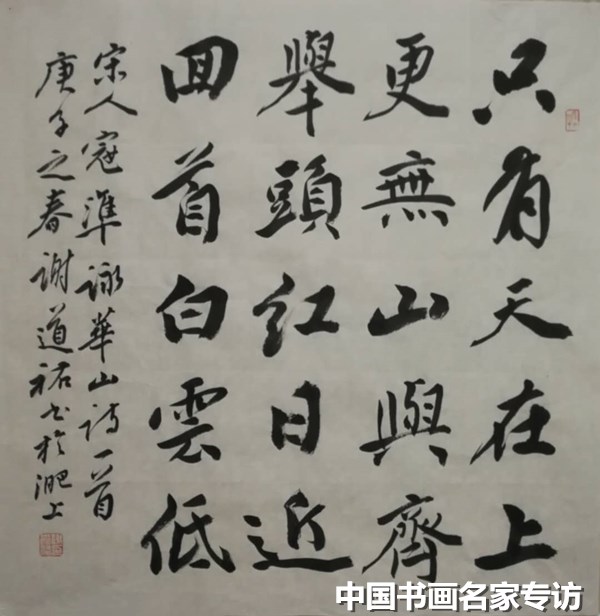 只有天在上
更無山與齊
舉頭紅日近
回首白雲低
宋人寇準詠華山詩一首
庚子之春謝道祐书於淝上
中国书画名家专访